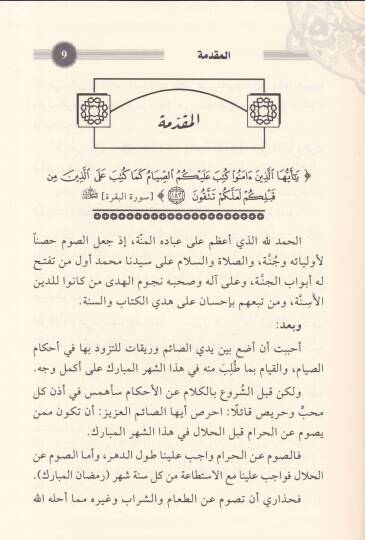 المقدمة
9
المقدّمة
﴿ يَٰٓأَيُّهَا ٱلَّذِينَ ءَامَنُوا۟ كُتِبَ عَلَيْكُمُ ٱلصِّيَامُ كَمَا كُتِبَ عَلَى ٱلَّذِينَ مِن
قَبْلِكُمْ لَعَلَّكُمْ تَتَّقُونَ ﴿١٨٣﴾ ﴾ [سورة البقرة]
الحمد لله الذي أعظم على عباده المنّة، إذ جعل الصوم حصناً
لأوليائه وجُنَّة، والصلاة والسلام على سيدنا محمد أول من تفتح
له أبواب الجنَّة، وعلى آله وصحبه نجوم الهدى من كانوا للدين
الأسِنَّة، ومن تبعهم بإحسان على هدي الكتاب والسنة.
وبعد:
أحببت أن أضع بين يدي الصائم وريقات للتزود بها في أحكام
الصيام، والقيام بما طُلِبَ منه في هذا الشهر المبارك على أكمل وجه.
ولكن قبل الشُروع بالكلام عن الأحكام سأهمس في أذن كل
محبٍّ وحريص قائلًا: احرص أيها الصائم العزيز: أن تكون ممن
يصوم عن الحرام قبل الحلال في هذا الشهر المبارك.
فالصوم عن الحرام واجب علينا طول الدهر، وأما الصوم عن
الحلال فواجب علينا مع الاستطاعة من كل سنة شهر (رمضان المبارك).
فحذاري أن تصوم عن الطعام والشراب وغيره مما أحله الله